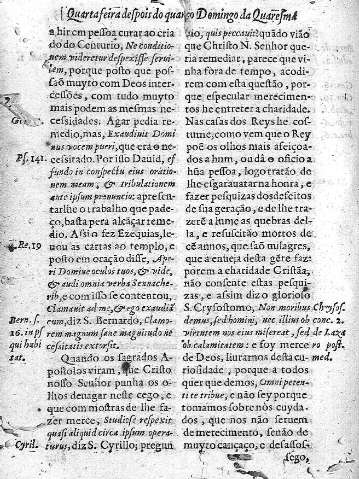 Quarta feira despois do quarto Domingo da Quaresma
a hir em pessoa curar ao cria
do do Centurio, Ne conditio-
nem videretur despexisse servi-
lem, porque posto que pos-
são muyto com Deos inter-
cessões, com tudo muyto
mais podem as mesmas ne-
cessidades. Agar pedia re-
medio, mas, Exaudiuit Domi
nus vocem pueri, que era o ne-
cessitado. Por isso Dauid, ef
fundo in conspectu eius oratio-
nem meam, & tribulationem
ante ipsum pronuncio: apresen-
tarlhe o trabalho que pade-
ço, basta pera alcãçar reme-
dio. Assi o fez Ezequias, le-
uou as cartas ao templo, e
posto em oração disse, Ape-
ri Domine oculos tuos, & vide,
& audi omnia verba Sennache-
rib, e com isso se contentou,
Clamauit ad me, & ego exaudiã
eum, diz S. Bernardo, Clamo-
rem magnum sane magnitudo ne
cessitatis extorsit.
Quando os sagrados A-
postolos viram, que Cristo
nosso Senhor punha os o-
lhos denagar neste cego, e
que com mostras de lhe fa-
zer merce, Studiose respexit
quasi aliquid circa ipsum opera-
turus, diz S. Cyrillo; pregun
Gen.
Ps. 141.
4. Re. 19
Bern. s.
16. in ps.
qui habi
tat.
Cyril.
são, quis peccauit? quando vião
que Christo N. Senhor que-
ria remediar, parece que vi-
nha fora de tempo, acodi-
rem com esta questão, por-
que especular merecimen-
tos he entreter a charidade.
Nas casas dos Reys he cos-
tume, como vem que o Rey
poê os olhos mais afeiçoa-
dos a hum, ou dà o oficio a
hũa pessoa, logo tratão de
lhe esgarauatar na honra, e
fazer pesquizas dos defeitos
de sua geração, e de lhe tra-
zerê a lume as quebras del-
la, e resuscitão mortos de
cẽ annos, que são milagres,
que a enueja desta gẽte faz
porem a charidade Cristãa,
não consente estas pesqui-
zas, e assim dizo glorioso
S. Crysostomo, Non moribus
demus, sed homini, nec illius ob
virentem nos eius misereat, sed
ob calamitatem: e soy merce
de Deos, liurarmos desta cu-
riosidade, porque a todos
quer que demos, Omni peten-
ti te tribue, e não sey porque
tomamos sobre nòs cuyda-
dos, que nos não seruem
de merecimento, senão de
muyto cansaço, e desassos-
sego,
Chrysos.
conc. 2.
de Laza
ro post.
med.